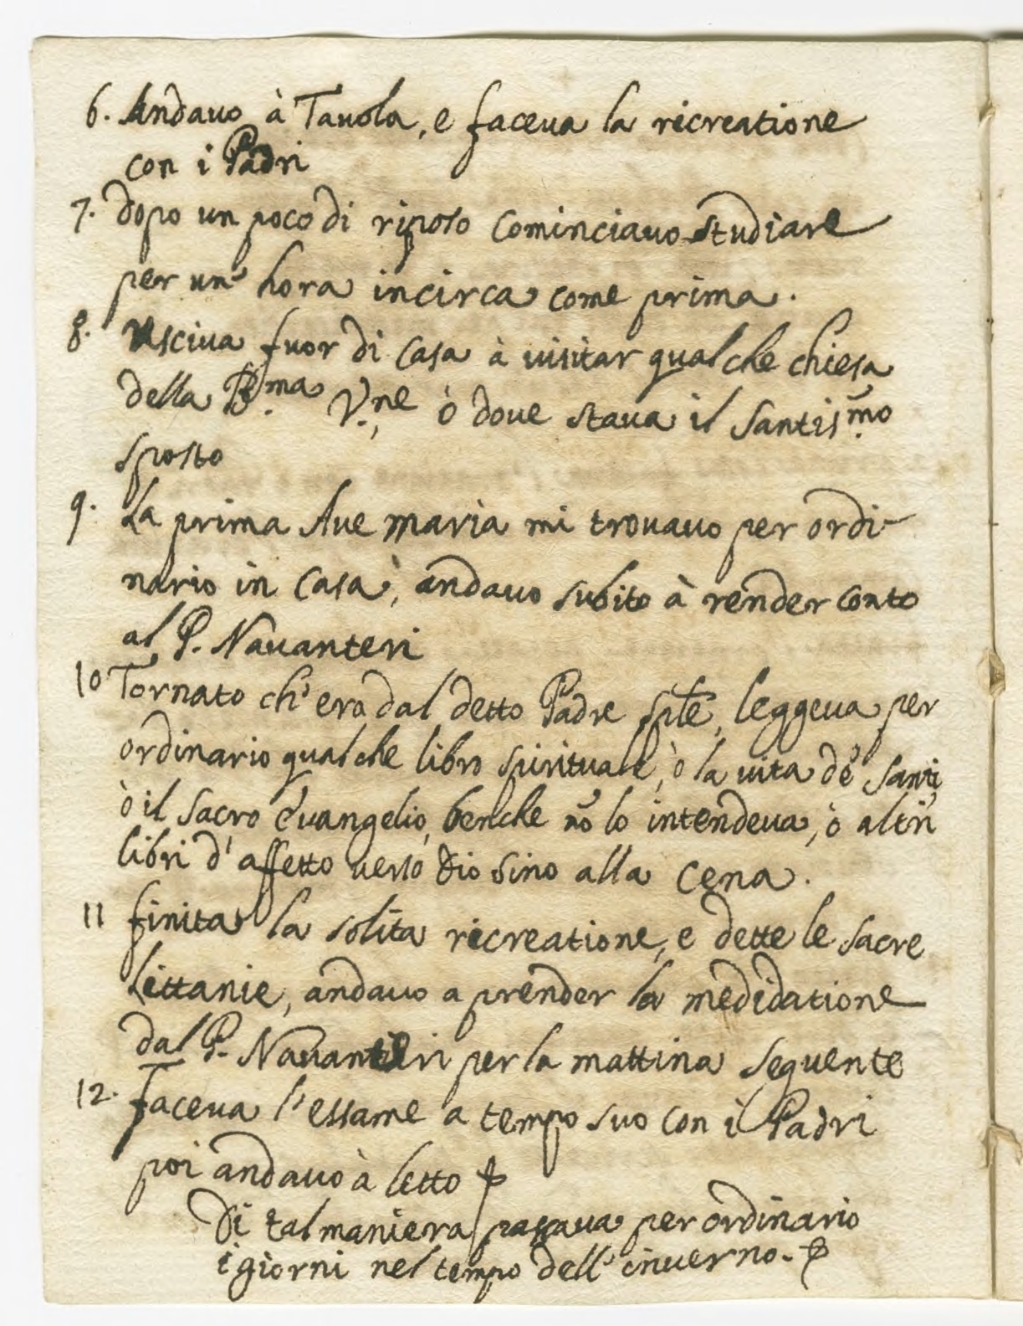 6. Andauo à Tauola, e faceua la recreatione
con i Padri
7. dopo un poco di riposo cominciauo studiare
per un' hora incirca come prima.
8. Usciua fuor di casa à uisitar qualche chiesa
della B.ma V.ne ò doue staua il Santis.mo
sposto
9. La prima Aue maria mi trouauo per ordi-
nario in casa, andauo subito à render conto
al P. Nauanteri
10 Tornato ch'era dal detto Padre spĩte, leggeua per
ordinario qualche libro spirituale, ò la uita de' Santi
ò il sacro euangelio, benche nõ lo intendeua, ò altri
libri d'affetto uerso Dio sino alla cena.
11 finita la solita recreatione, e dette le sacre
Littanie, andauo a prender la medidatione
dal P. Nauanteri per la mattina seguente
12. Faceua l'essame a tempo suo con i Padri
poi andauo à letto
Di tal maniera passaua per ordinario
i giorni nel tempo dell' inuerno.